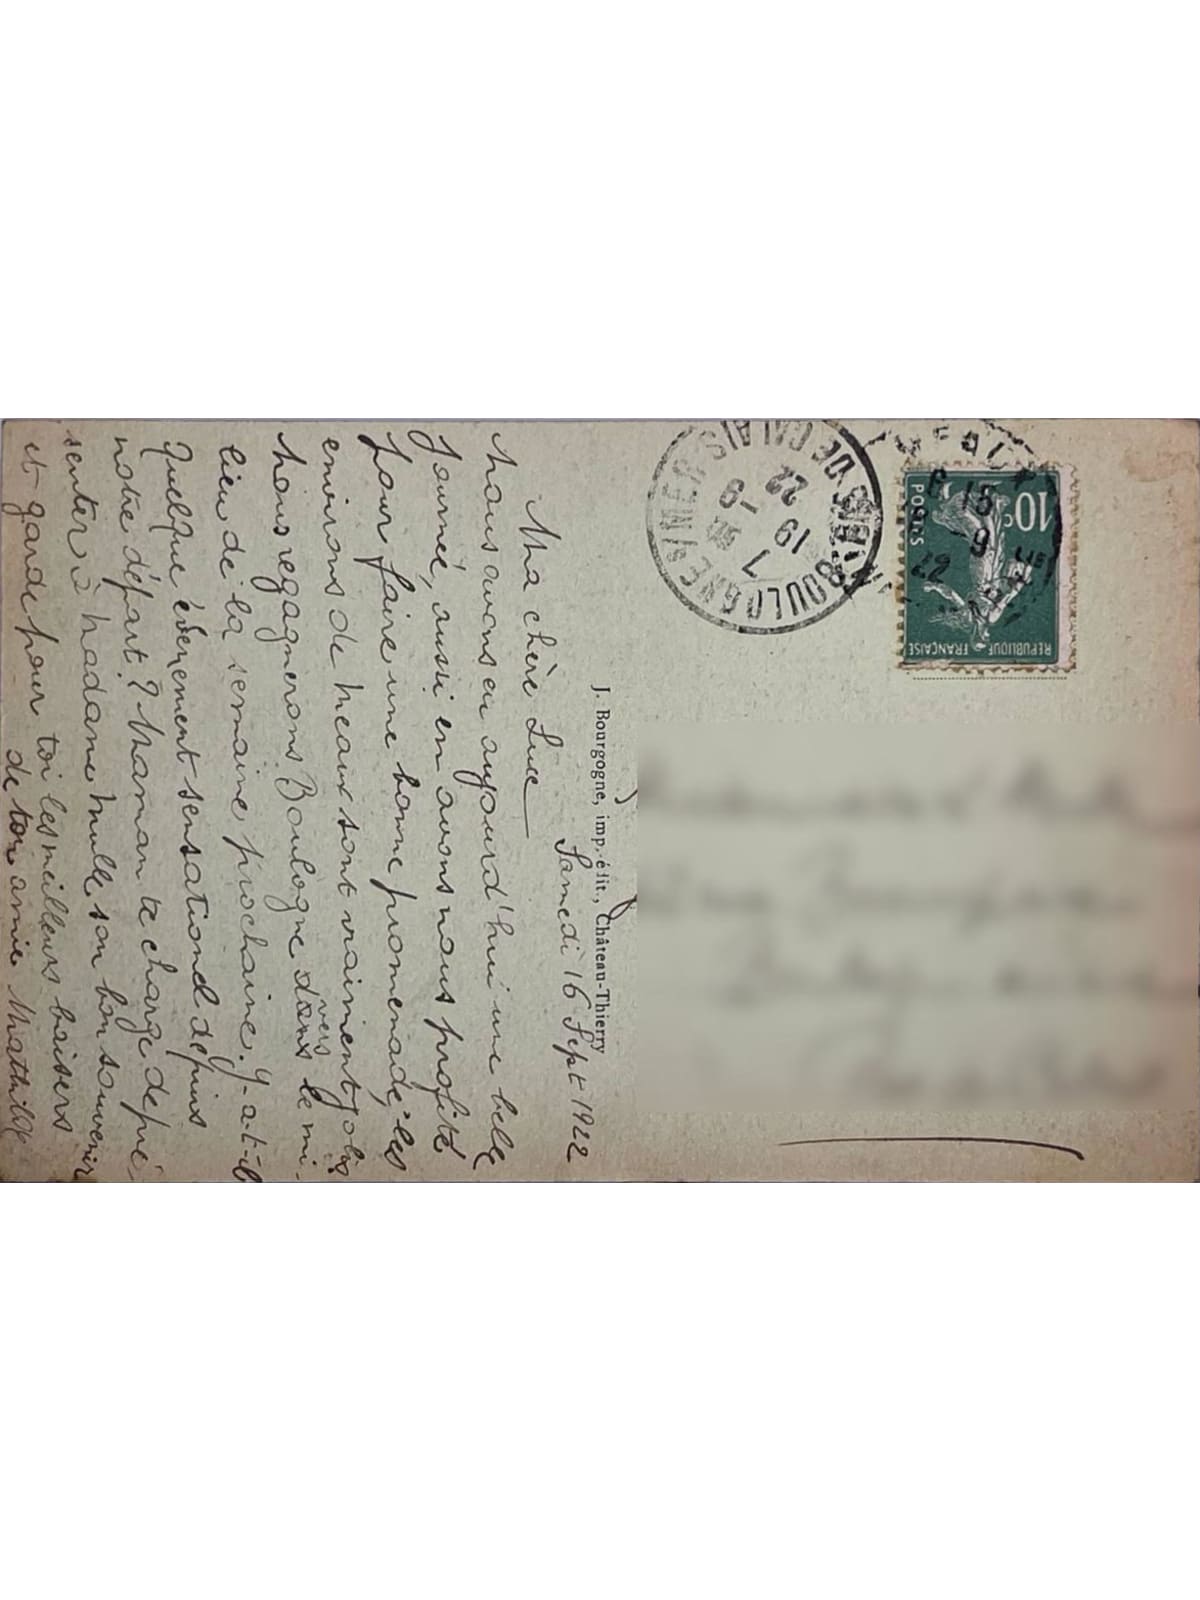 Samedi 16 Sept 1922
Ma chère Luce
Nous avons eu aujourd'hui une belle
journée, aussi en avons nous profité
pour faire une bonne promenade, les
environs de Meaux sont vraiment jolis
Nous regagnerons Boulogne dans le mi-
vers
lieu de la semaine prochaine. Y-a-t-il
quelque évènement sensationel depuis
notre départ? Maman te charge de pré-
senter à Madame son bon souvenir
et garde pour toi les meilleurs baisers
de ton amie Mathilde
J. Bourgogne, imp. édit., Château-Thierry
BOULOGNE S/MER
PAS DE CALAIS
7
19 - 9
22
10c
POSTES
REPUBLIQUE FRANÇAISE